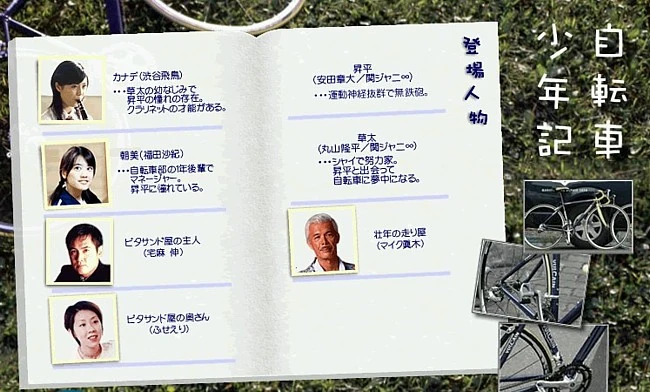 自転車
少年記
登場人物
昇平
(安田章大/関ジャニ∞)
・・・運動神経抜群で無鉄砲。
草太
(丸山隆平/関ジャニ∞)
・・・シャイで努力家。
昇平と出会って
自転車に夢中になる。
壮年の走り屋
(マイク眞木)
カナデ(渋谷飛鳥)
・・・草太の幼なじみで
昇平の憧れの存在。
クラリネットの才能がある。
朝美(福田沙紀)
・・・自転車部の1年後輩で
マネージャー。
昇平に憧れている。
ピタサンド屋の主人
(宅麻 伸)
ピタサンド屋の奥さん
(ふせえり)